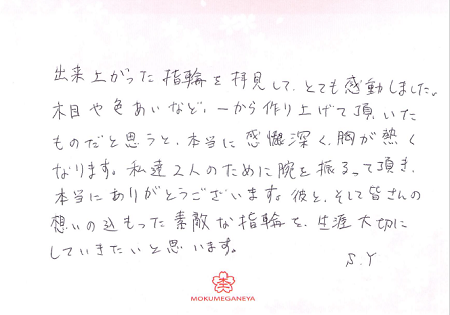 出来上がった指輪を拝見して、とても感動しました。
木目や色あいなど、一から作り上げて頂いた
ものだと思うと、本当に感慨深く、胸が熱く
なります。私達2人のために腕を振るって頂き、
本当にありがとうございます。彼と、そして皆さんの
想いの込もった素敵な指輪を、生涯大切に
していきたいと思います。
S.Y
MOKUMEGANEYA